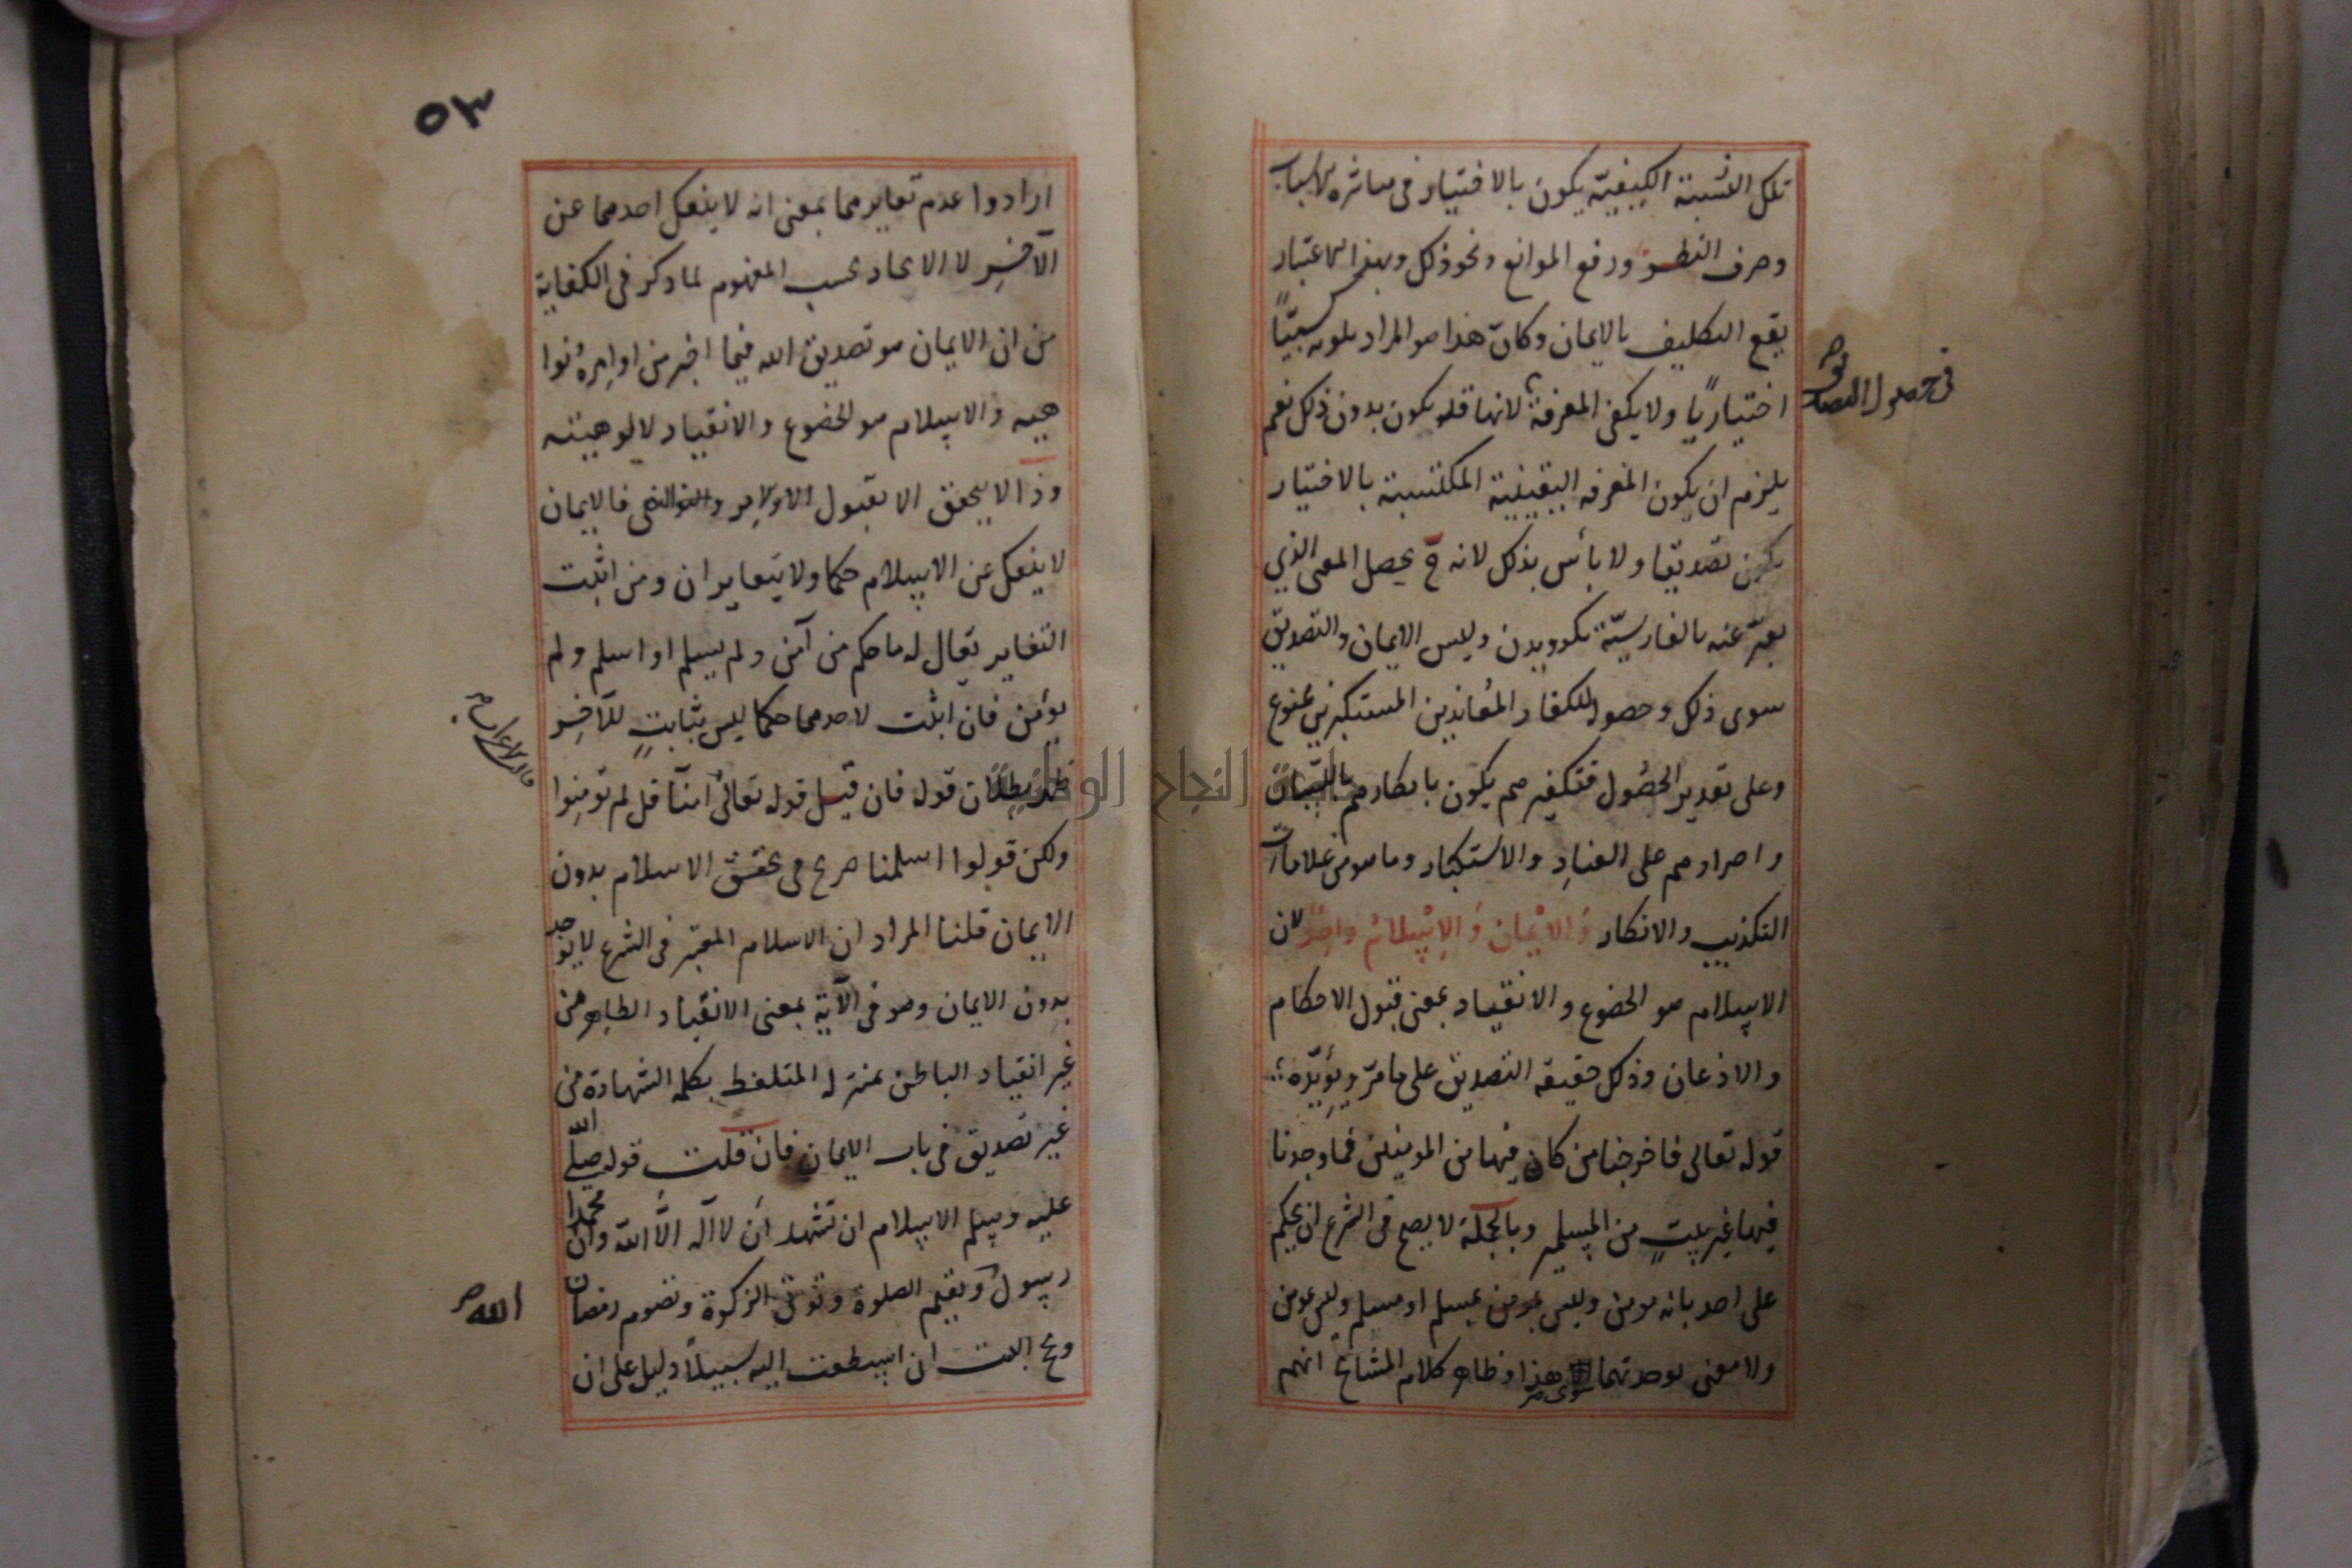 تلك النسبة الكيفية يكون بالاختيار فى مباشرة الاسباب
وصرف النظر ورفع الموانع ونحو ذلك وبهذا الاعتبار
يقع التكليف بالايمان وكانّ هذا هو المراد بكونه كسبيّاً
اختياريّاً ولا يكفى المعرفة لانها قد يكون بدون ذلك نعم
فى حصول التصديق صح
يلزم ان يكون المعرفه اليقينية المكتسبة بالاختيار
تصديقا ولا بأس بذلك لانه ح يحصل المعنى الذي
يعبّر عنه بالفارسيّة بكرويدن وليس الايمان والتصديق
سوى ذلك وحصوله للكفار المُعاندين المستكبرين ممنوع
وعلى تقدير الحصُول فتكفيرهم يكون بانكارهم باللّسان
واصرارهم على العنادِ والاستكبار وما هو من علامات
التكذيب والانكار وَالاِيْمان وَالاِسْلامُ واحِدٌ لان
الاسلام هو الخضوع والانقياد بمعنى قبول الاحكام
والاذعان وذلك حقيقه التصديق على ما مرّ ويُؤيّده
قوله تعالى فاخرجنا من كان فيها من المومنين فما وجدنا
فيها غير بيتٍ من المسلمين وبالجملة لا يصح فى الشرع ان يحكم
على احد بانه مومن وليس بمسلم او مسلم وليس بمومن
ولا معنى بوحدتهما سوى هذا وظاهر كلام المشايخ انهم
٥٣
ارادوا عدم تغايرهما بمعنى انه لا ينفك احدهما عن
الآخرِ لا الاتحاد بحسب المفهوم لما ذكر فى الكفاية
من ان الايمان هو تصديق الله فيما اخبر من اوامره ونوا
هيه والاسلام هو الخضوع والانقياد لالوهيته
وذا لا يتحقق الا بقبول الاوامر والنواهى فالايمان
لا ينفك عن الاسلام حكما ولا يتغايران ومن اثبت
التغاير يقال له ما حكم من آمن ولم يسلم او اسلم ولم
يؤمن فان اثبت لاحدهما حكما ليس بثابتٍ للآخرِ
ظهر بطلان قوله فان قيل قوله تعالى آمنّا قل لم تؤمنوا
قالت الاعراب صح
ولكن قولوا اسلمنا صريح فى تحقق الاسلام بدون
الايمان قلنا المراد ان الاسلام المعتبر فى الشرع لا يوجد
بدون الايمان وهو فى الآية بمعنى الانقياد الظاهر من
غير انقياد الباطن بمنزله المتلفظ بكلمه الشهادة من
غير تصديق فى باب الايمان فان قلت قوله صلّى الله
عليه وسلم الاسلام ان تشهد أن لا آله الّا الله وان محمدا
رسول وتقيم الصلوة وتوتى الزكوة وتصوم رمضان
الله صح
وتحج البيت ان استطعت اليه سبيلاً دليل على ان
جامعة النجاح الوطنية